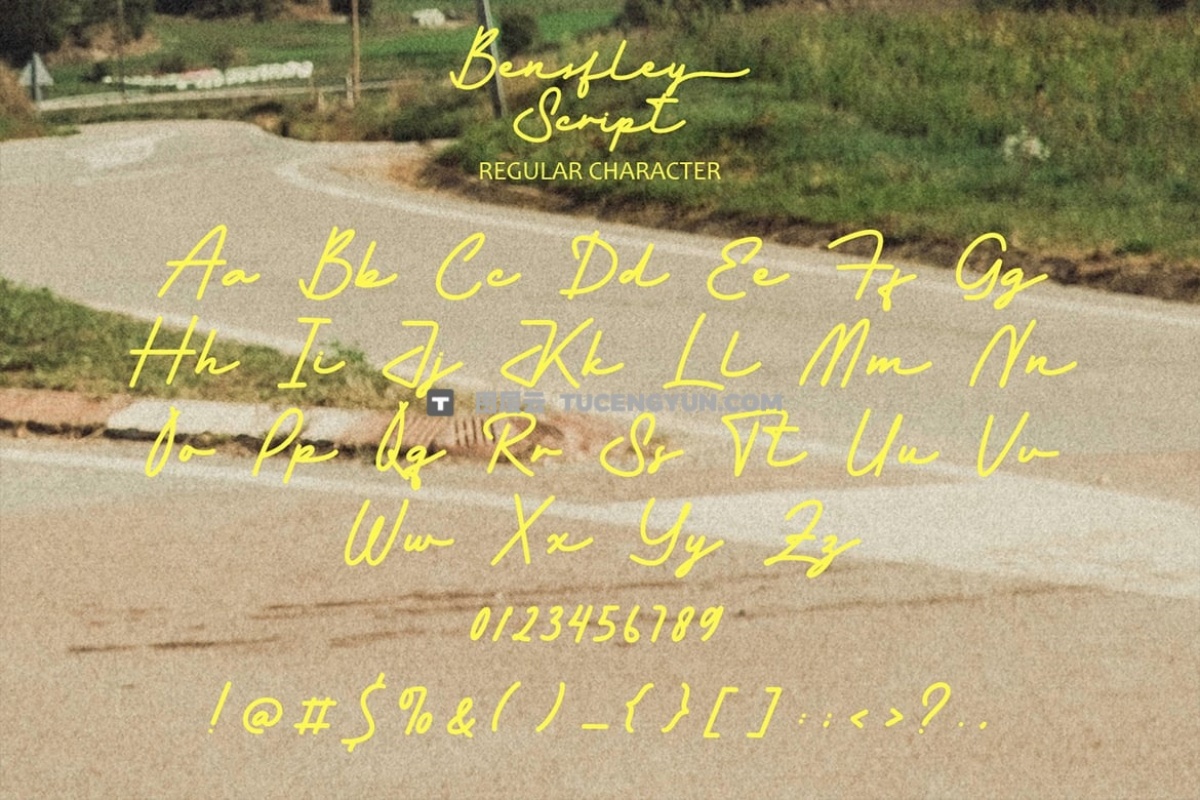 Bensfley
Script
REGULAR CHARACTER
Aa Bb Cc Dd Ee Ff Gg
Hh Ii Jj Kk Ll Mm Nn
T 图层云 TUCENGYUN.COM
Oo Pp Qq Rr Ss Tt Uu Vv
Ww Xx Yy Zz
0123456789
!@#$%&()_{}[]:;<>?.,